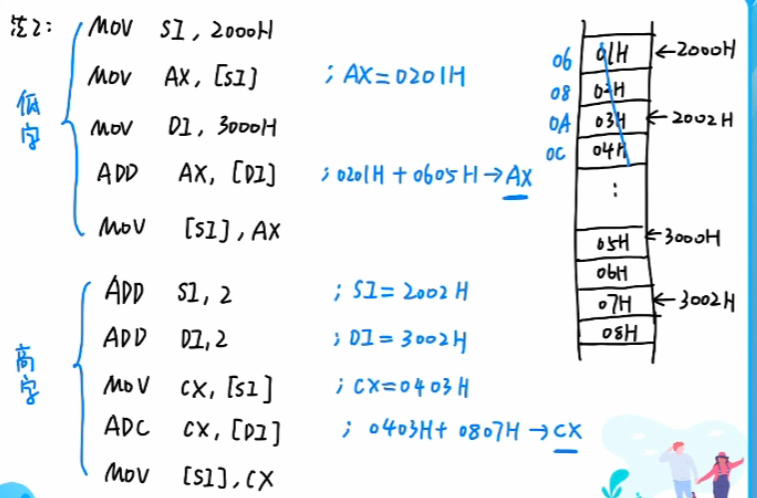 法2:
MOV SI, 2000H
MOV AX, [SI] ; AX=0201H
低字
MOV DI, 3000H
ADD AX, [DI] ; 0201H + 0605H → AX
MOV [SI], AX
ADD SI, 2 ; SI=2002H
ADD DI, 2 ; DI=3002H
高字
MOV CX, [SI] ; CX=0403H
ADC CX, [DI] ; 0403H + 0807H → CX
MOV [SI], CX
06 01H ←2000H
08 02H
0A 03H ←2002H
0C 04H
⋮
05H ←3000H
06H
07H ←3002H
08H